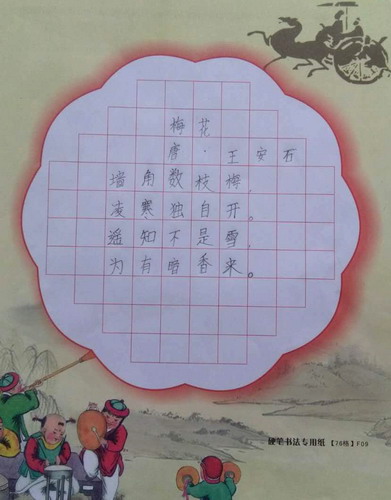 梅花
唐·王安石
墙角数枝梅
凌寒独自开。
遥知不是雪,
为有暗香来。
硬笔书法专用纸【76格】F09